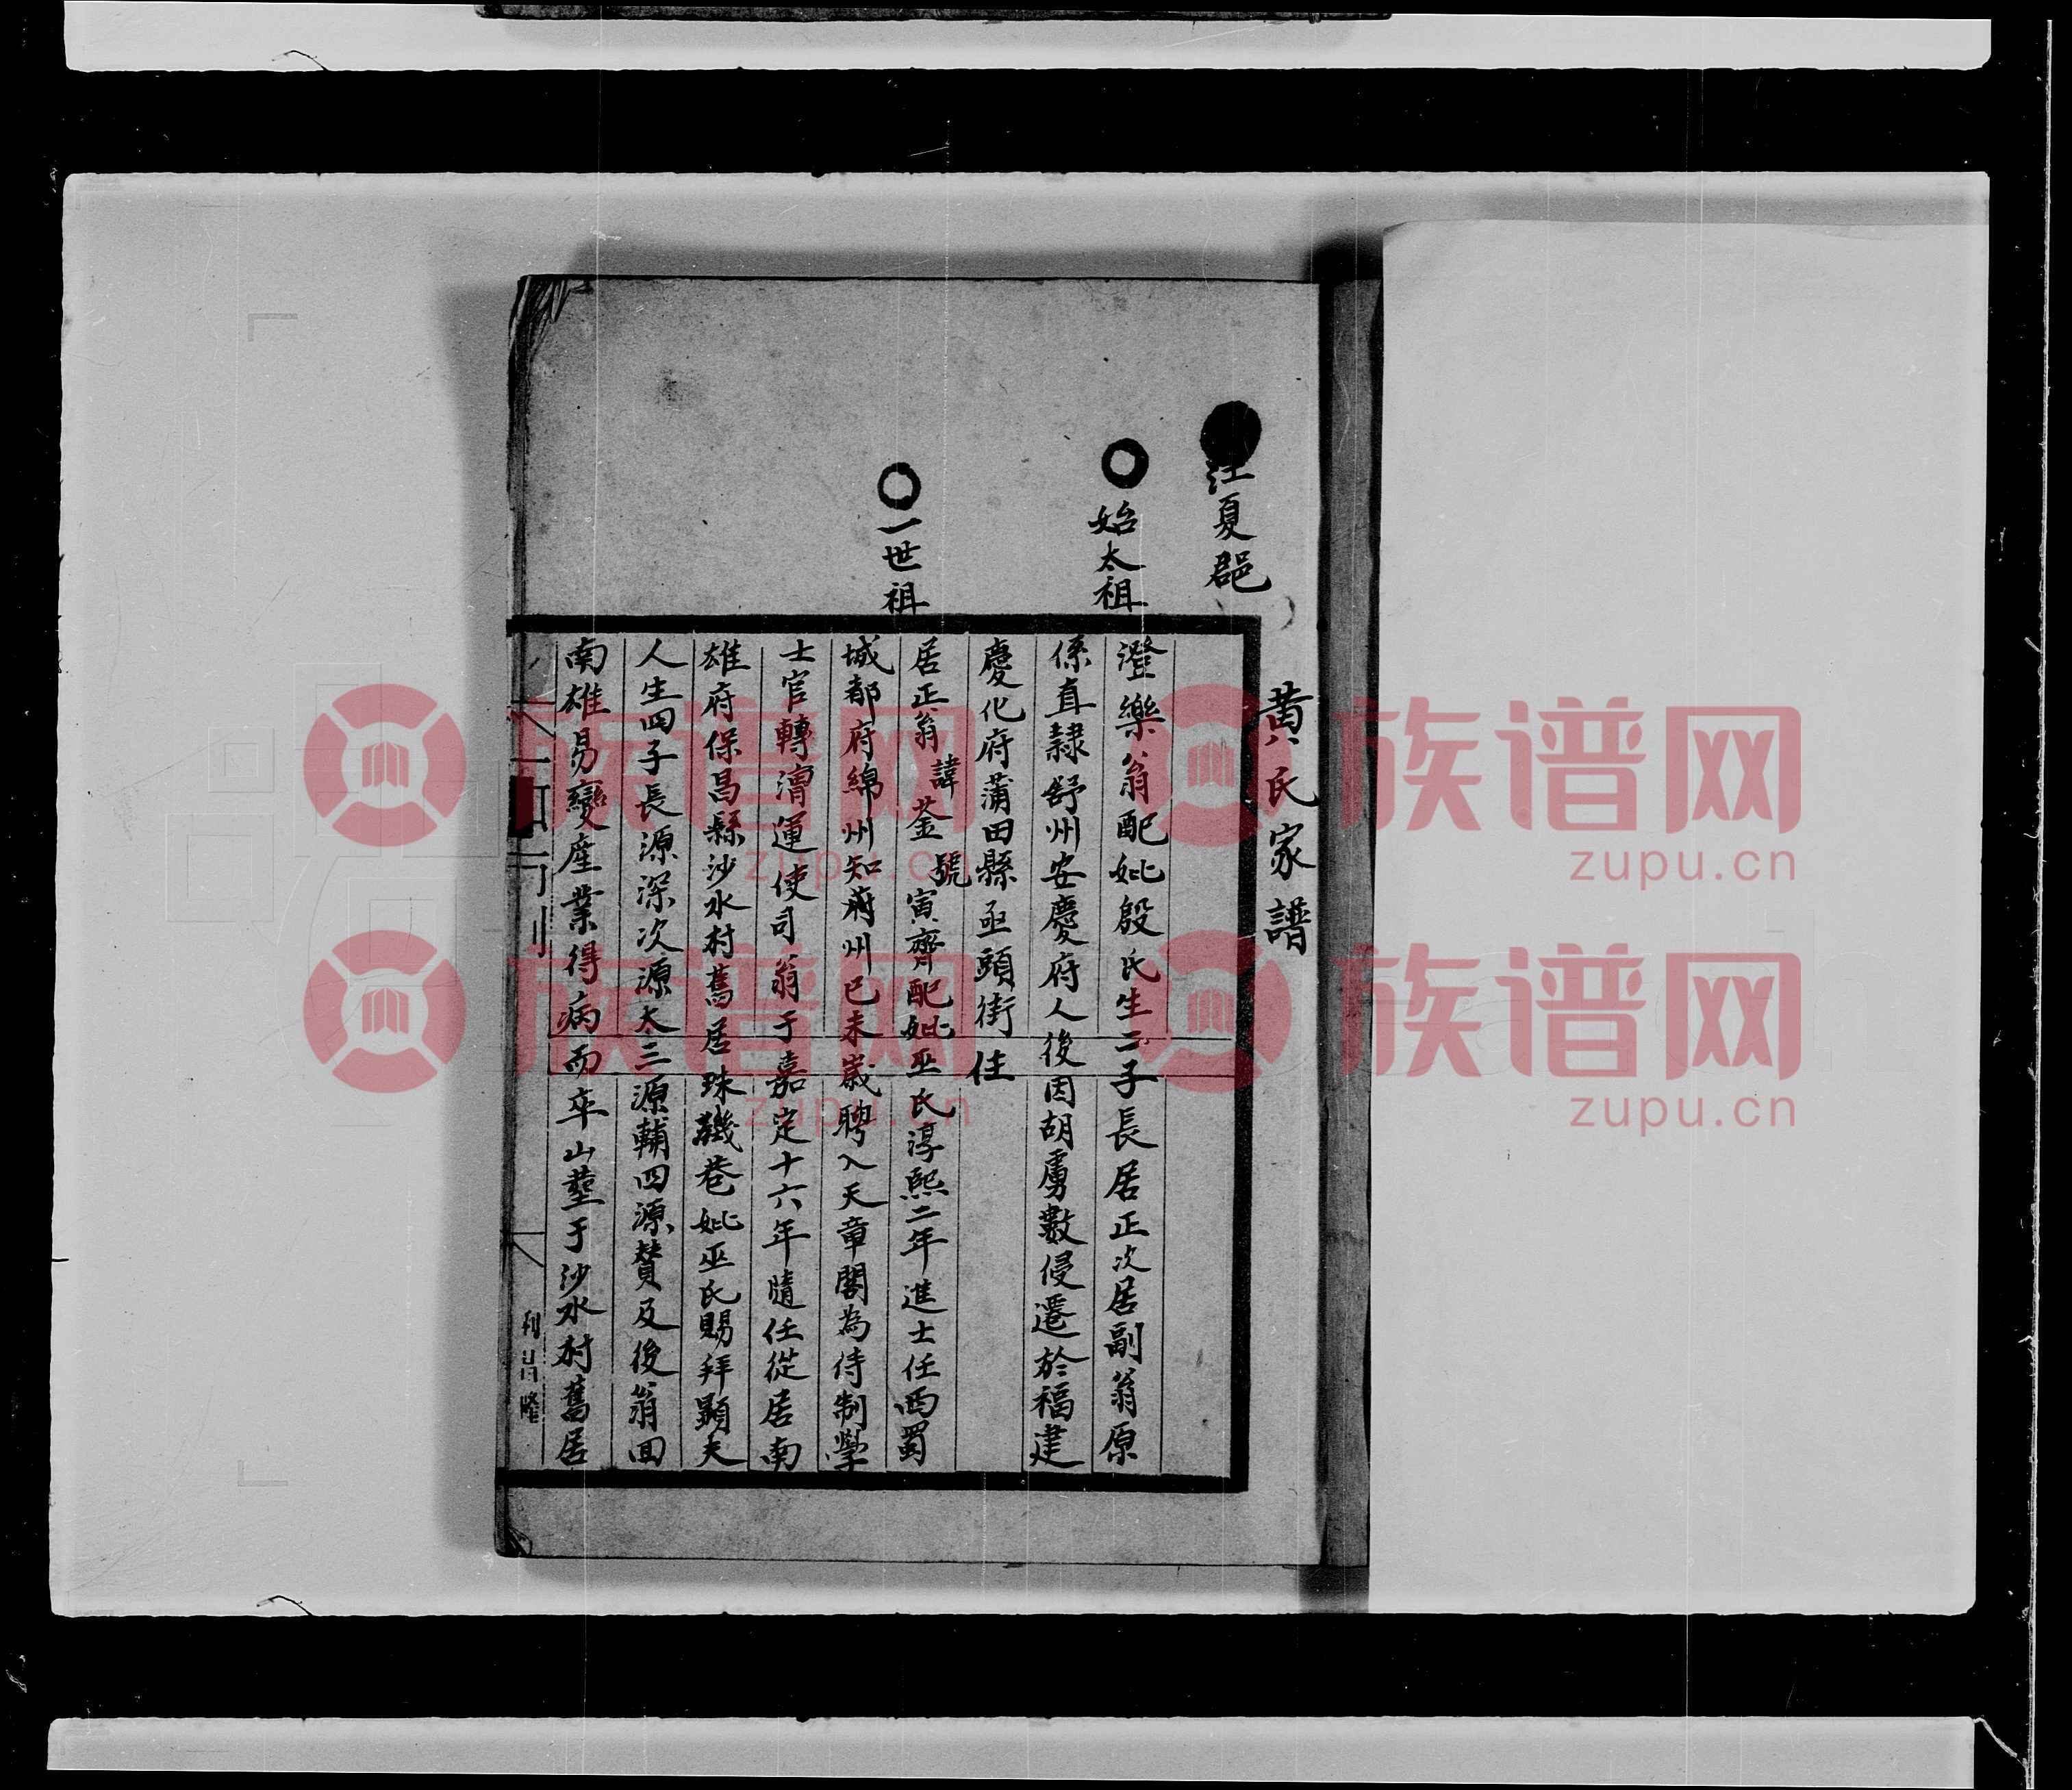 黄氏家譜
江夏郡
始太祖
澄樂翁配妣殷氏生二子長居正次居副翁原
係直隸舒州安慶府人後因胡虜數侵遷於福建
慶化府蒲田縣亟頭街住
一世祖
居正翁諱荃號寅齊配妣巫氏淳熙二年進士任西蜀
城都府綿州知府州已未歲聘入天章閣為侍制學
士官轉漕運使司翁于嘉定十六年隨任從居南
雄府保昌縣沙水村舊居珠璣巷妣巫氏賜拜顯夫
人生四子長源深次源太三源輔四源贊及後翁回
南雄易變産業得病而卒山塟于沙水村舊居
族谱网
zupu.cn
族谱网
zupu.cn
族谱网
zupu.cn
族谱网
zupu.cn